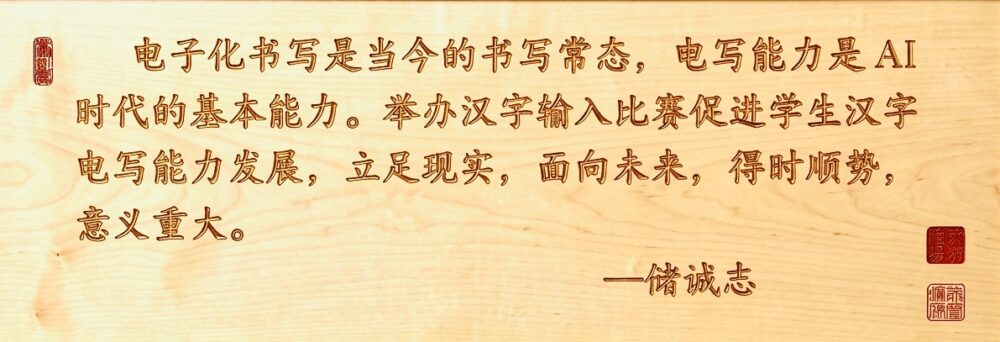 电子化书写是当今的书写常态，电写能力是AI
时代的基本能力。举办汉字输入比赛促进学生汉字
电写能力发展，立足现实，面向未来，得时顺势，
意义重大。
—储诚志